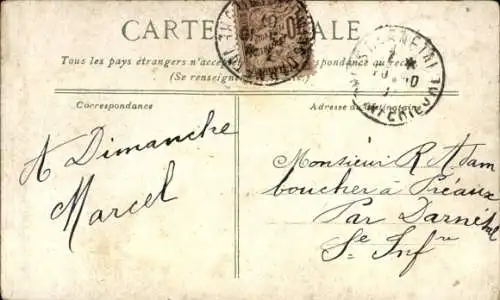 CARTE ALE
Tous les pays étrangers n'accep pondance au recto
(Se renseigne
Correspondance
Adresse du destinataire
A Dimanche
Marcel
Monsieur R Adam
boucher à Préaux
Par Darnétal
Se Infre